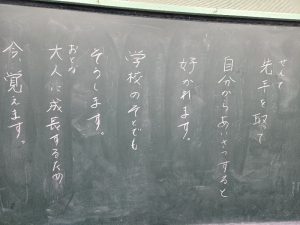 せんて
先手を取って
自分からあいさつすると
好かれます。
学校のそとでも
そうします。
おとな
大人に成長するため
今、覚えます。